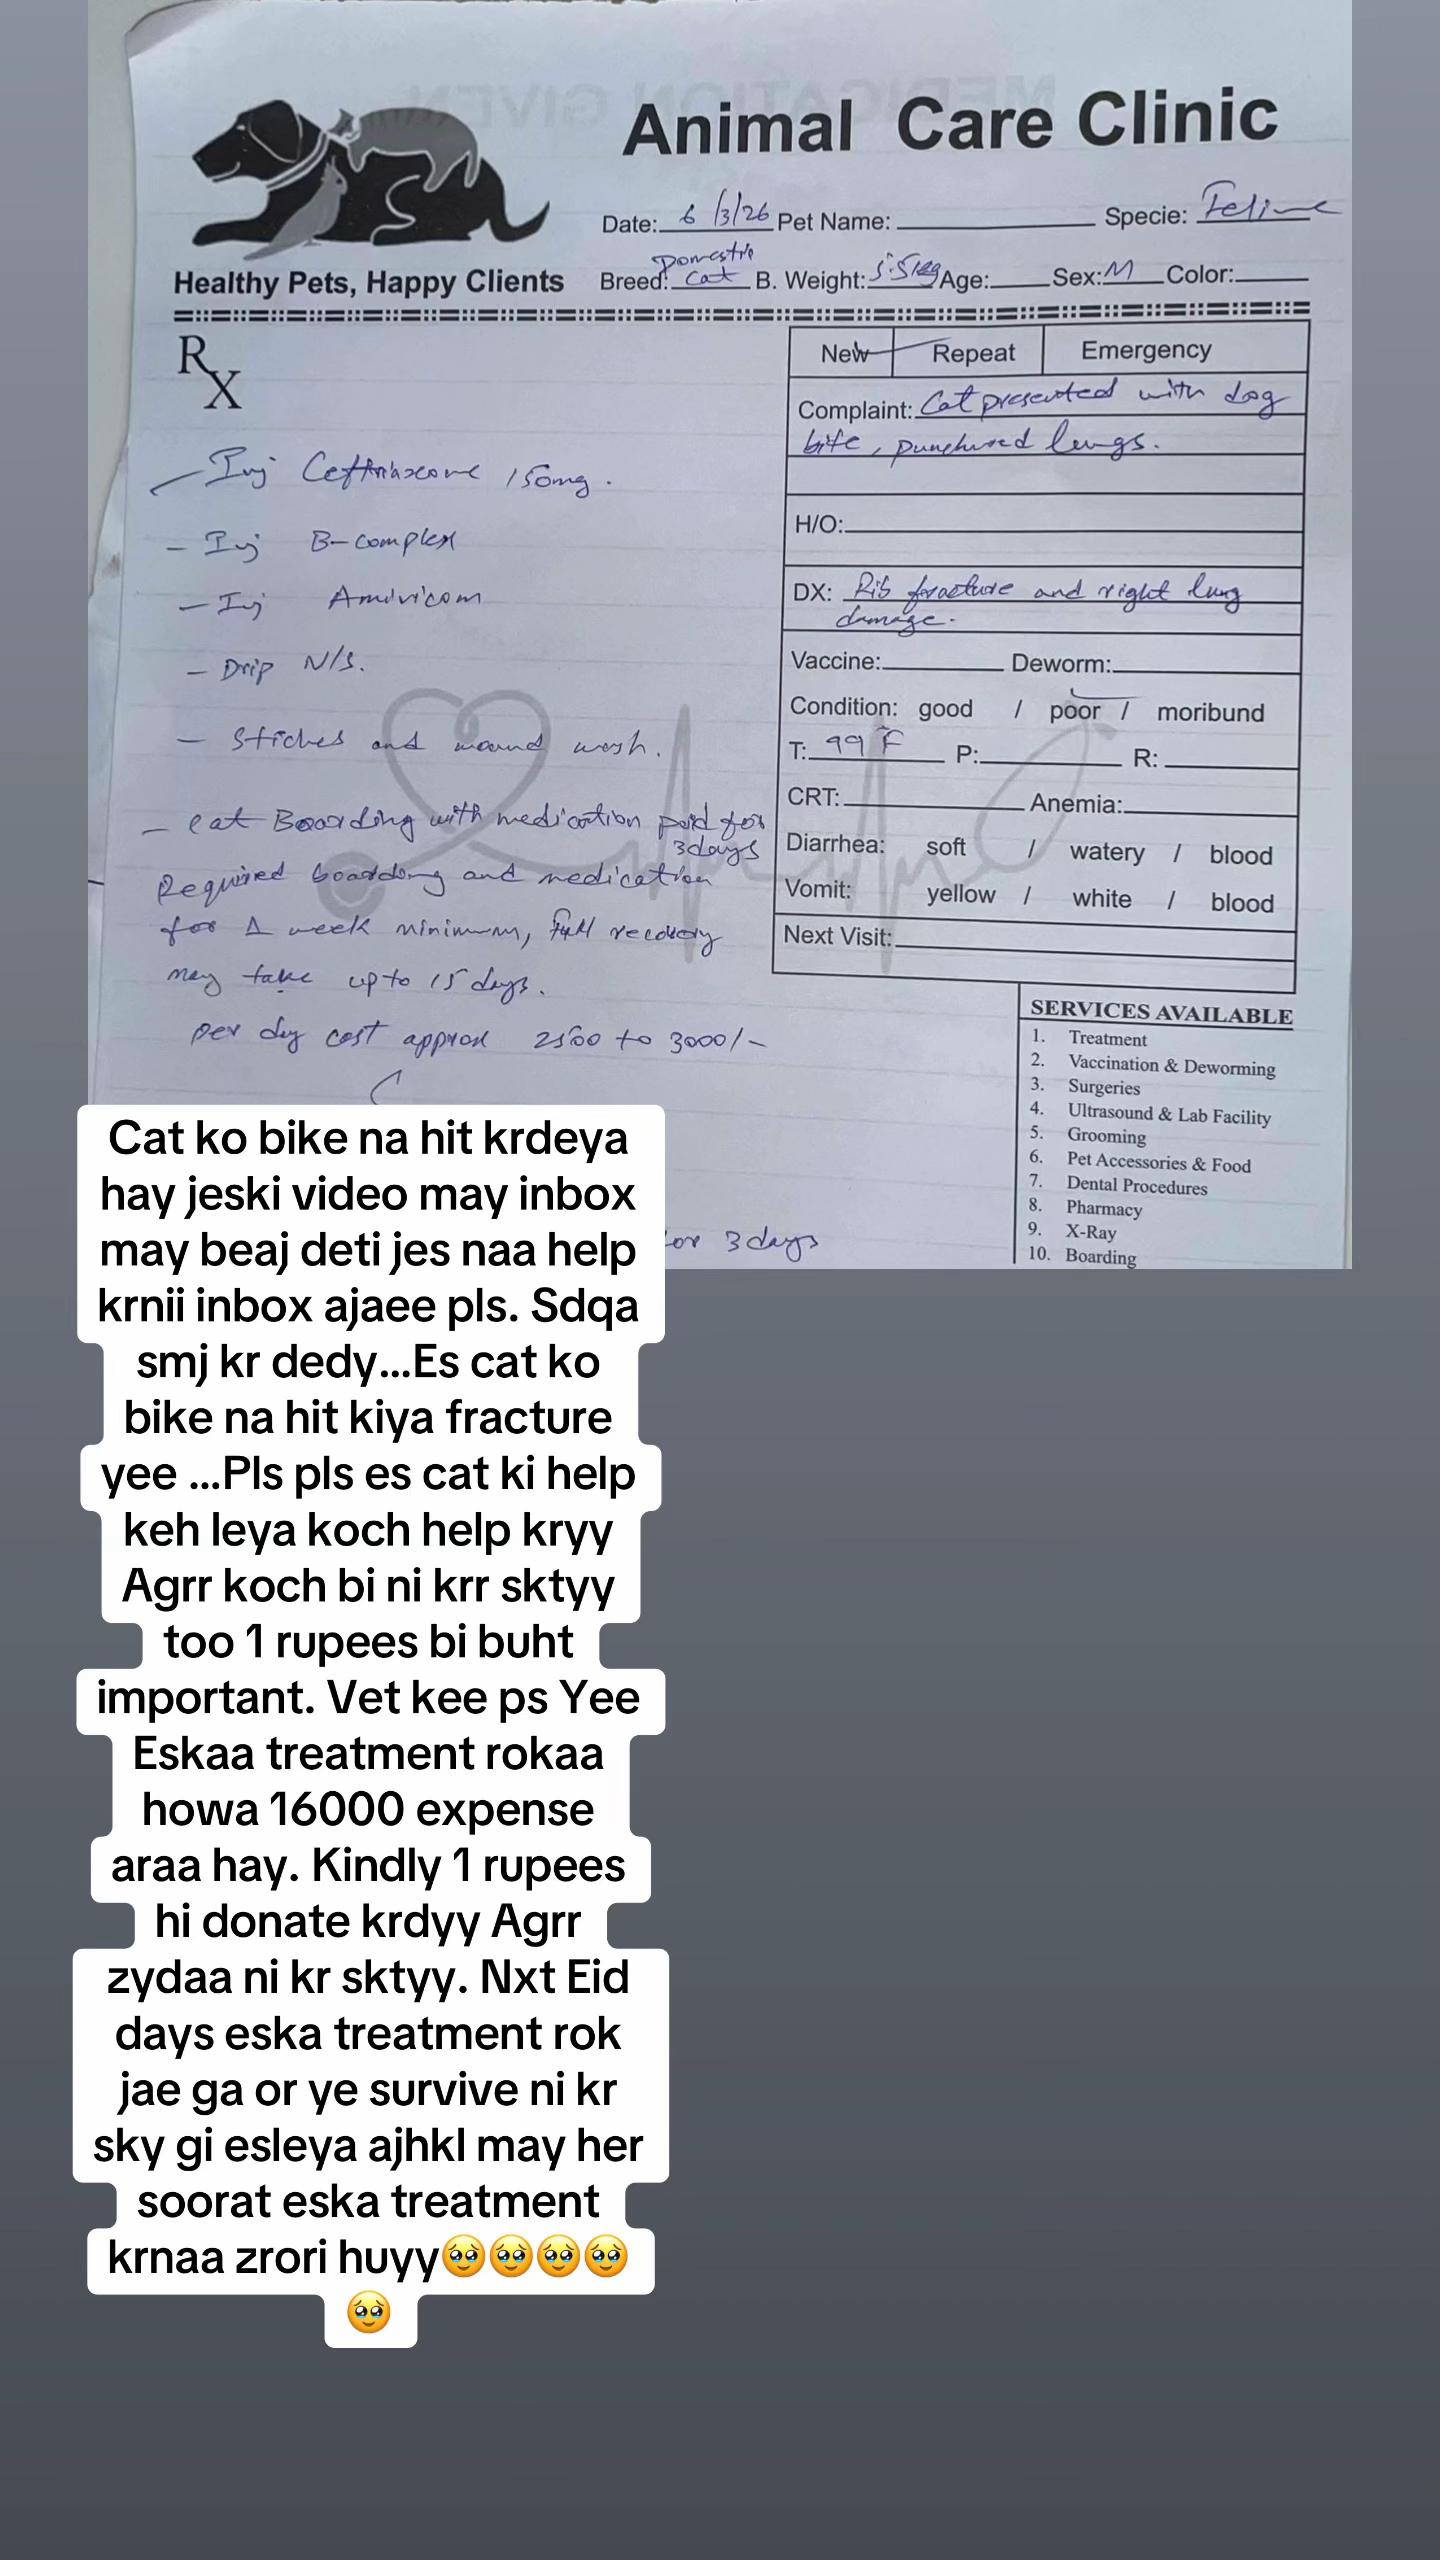 Animal Care Clinic
Healthy Pets, Happy Clients
Date: 6/3/26 Pet Name: Specie: Feline
Breed: Domestic cat B. Weight: 5.5kg Age: Sex: M Color:
RX
New Repeat Emergency
Complaint: Cat presented with dog
bite, punchured lungs.
H/O:
DX: Rib fracture and right lung
damage.
Vaccine: Deworm:
Condition: good / poor / moribund
T: 99 F P: R:
CRT: Anemia:
Diarrhea: soft / watery / blood
Vomit: yellow / white / blood
Next Visit:
- Inj Ceftriaxone 150mg.
- Inj B-complex
- Inj
- Drip N/S.
- Stiches and wound wash.
- cat Boarding with medication paid for
3days
Required boarding and medication
for 1 week minimum, full recovery
may take upto 15 days.
per day cost approx 2500 to 3000/-
or 3days
SERVICES AVAILABLE
1. Treatment
2. Vaccination & Deworming
3. Surgeries
4. Ultrasound & Lab Facility
5. Grooming
6. Pet Accessories & Food
7. Dental Procedures
8. Pharmacy
9. X-Ray
10. Boarding
Cat ko bike na hit krdeya
hay jeski video may inbox
may beaj deti jes naa help
krnii inbox ajaee pls. Sdqa
smj kr dedy...Es cat ko
bike na hit kiya fracture
yee ...Pls pls es cat ki help
keh leya koch help kryy
Agrr koch bi ni krr sktyy
too 1 rupees bi buht
important. Vet kee ps Yee
Eskaa treatment rokaa
howa 16000 expense
araa hay. Kindly 1 rupees
hi donate krdyy Agrr
zydaa ni kr sktyy. Nxt Eid
days eska treatment rok
jae ga or ye survive ni kr
sky gi esleya ajhkl may her
soorat eska treatment
krnaa zrori huyy🥹🥹🥹🥹
🥹